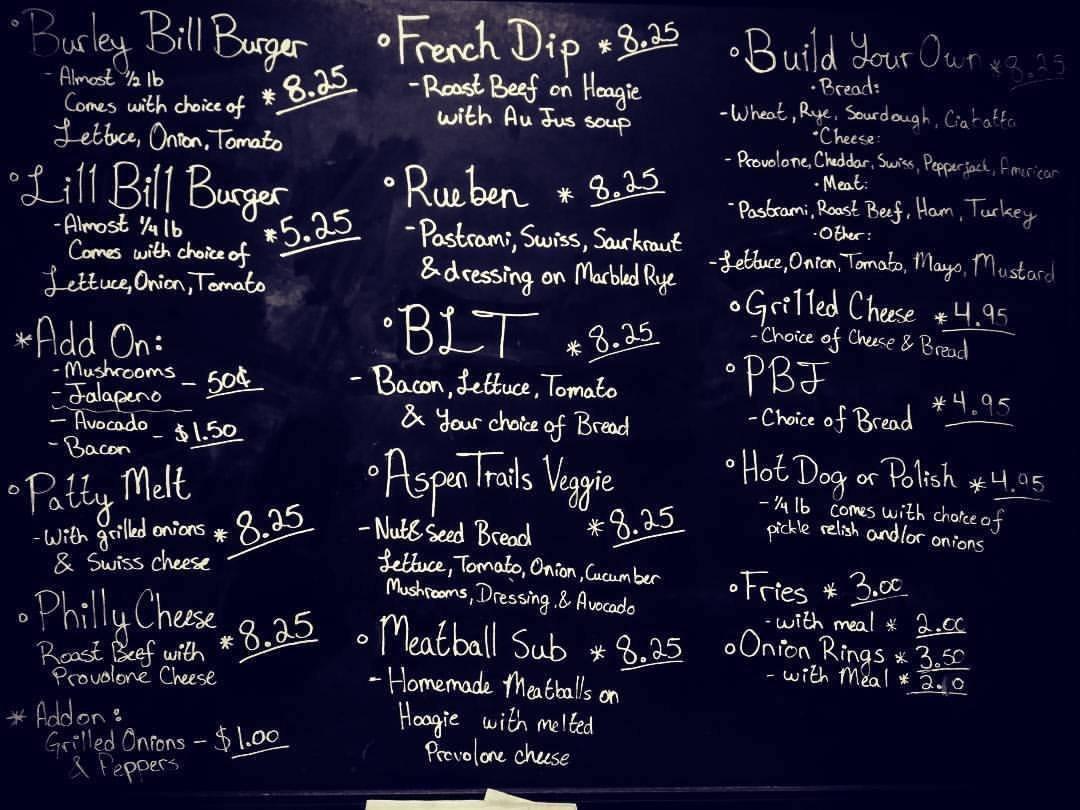 ° Burley Bill Burger
- Almost 1/2 lb * 8.25
Comes with choice of
Lettuce, Onion, Tomato
° Lill Bill Burger
- Almost 1/4 lb * 5.25
Comes with choice of
Lettuce, Onion, Tomato
* Add On:
- Mushrooms
- Jalapeno - 50¢
- Avocado
- Bacon - $1.50
° Patty Melt
- With grilled onions * 8.25
& Swiss cheese
° Philly Cheese
Roast Beef with * 8.25
Provolone Cheese
* Add on:
Grilled Onions - $1.00
& Peppers
° French Dip * 8.25
- Roast Beef on Hoagie
with Au Jus soup
° Rueben * 8.25
- Pastrami, Swiss, Saurkraut
& dressing on Marbled Rye
° BLT * 8.25
- Bacon, Lettuce, Tomato
& Your choice of Bread
° Aspen Trails Veggie
- Nut & Seed Bread * 8.25
Lettuce, Tomato, Onion, Cucumber
Mushrooms, Dressing, & Avocado
° Meatball Sub * 8.25
- Homemade Meatballs on
Hoagie with melted
Provolone cheese
° Build Your Own * 8.25
• Bread:
- Wheat, Rye, Sourdough, Ciabatta
• Cheese:
- Provolone, Cheddar, Swiss, Pepperjack, American
• Meat:
- Pastrami, Roast Beef, Ham, Turkey
• Other:
- Lettuce, Onion, Tomato, Mayo, Mustard
° Grilled Cheese * 4.95
- Choice of Cheese & Bread
° PBJ
- Choice of Bread * 4.95
° Hot Dog or Polish * 4.95
- 1/4 lb comes with choice of
pickle relish and/or onions
° Fries * 3.00
- with meal * 2.00
° Onion Rings * 3.50
- with Meal *